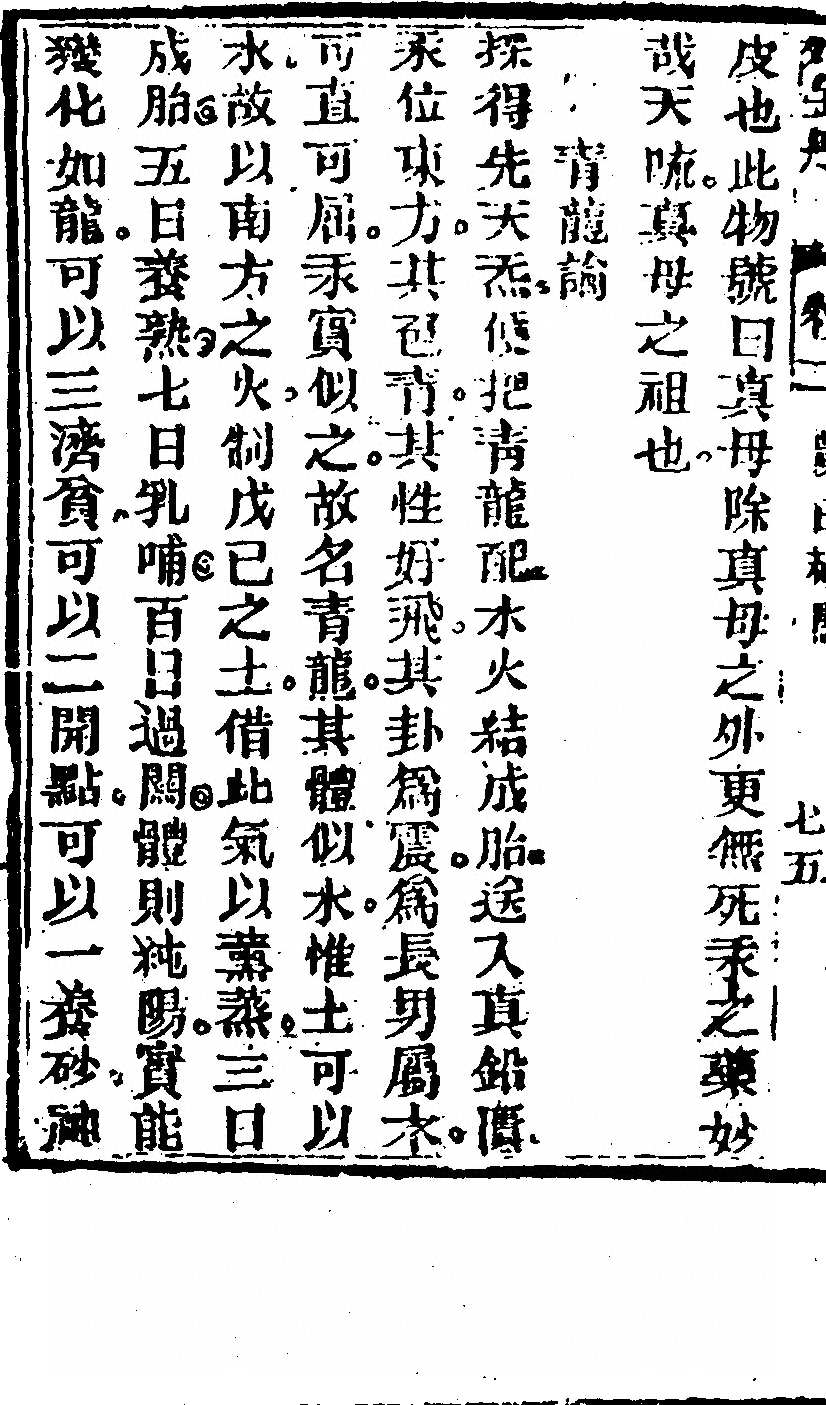 卷二 七五
皮也此物號曰真母除真母之外更無死汞之藥妙
哉天硫真母之祖也
青龍論
採得先天炁便把青龍配水火結成胎送入真鉛匱
汞位東方其色青其性好飛其卦爲震爲長男屬木
可直可屈汞實似之故名青龍其體似水惟土可以
水故以南方之火制戊己之土借此氣以薰蒸三日
成胎五日養熟七日乳哺百日過關體則純陽實能
變化如龍可以三濟貧可以二開點可以一養砂神